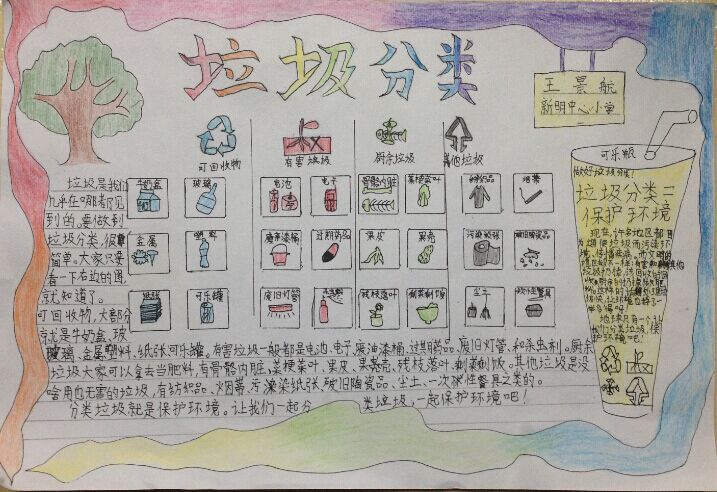 垃圾分类
王景航
新明中心小学
可回收物
有害垃圾
厨余垃圾
其他垃圾
牛奶盒
玻璃
电池
电子
骨骼内脏
菜梗菜叶
纺织品
烟蒂
金属
塑料
废油漆桶
过期药品
果皮
果壳
污染纸张
破旧陶瓷品
纸张
可乐罐
废旧灯管
杀虫剂
残枝落叶
剩菜剩饭
尘土
一次性餐具
垃圾是我们
几乎在哪都见
到的。要做到
垃圾分类,很
简单。大家只要
看一下右边的图
就知道了。
可回收物,大部分
就是牛奶盒、玻
璃、金属、塑料、纸张、可乐罐。有害垃圾一般都是电池、电子、废油漆桶、过期药品、废旧灯管、和杀虫剂。厨余
垃圾大家可以拿去当肥料,有骨骼内脏、菜梗菜叶、果皮、果壳、残枝落叶、剩菜剩饭。其他垃圾是没
啥用也无害的垃圾,有纺织品、烟蒂、污染纸张、破旧陶瓷品、尘土、一次性餐具之类的。
分类垃圾就是保护环境。让我们一起分类垃圾,一起保护环境吧!
可乐瓶
做好垃圾分类!
垃圾分类=
保护环境
现在,许多地区都
因为
垃圾而污染环
境
地球只有一个,让
我们分类垃圾,保
护环境吧!